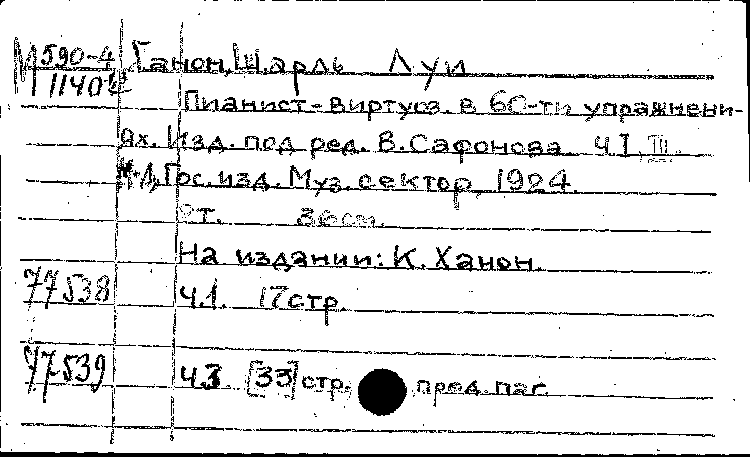 М 590-4 Ганон, Шарль Луи
1140
Пианист-виртуоз в 60-ти упражнени-
ях. Изд. под ред. В. Сафонова. ч I, III.
М.-Л., Гос. изд. Муз. сектор, 1924.
2т. 36 см.
На издании: К. Ханон.
77538 ч.1. 17 стр.
77539 ч.3 [33] стр. пред. паг.